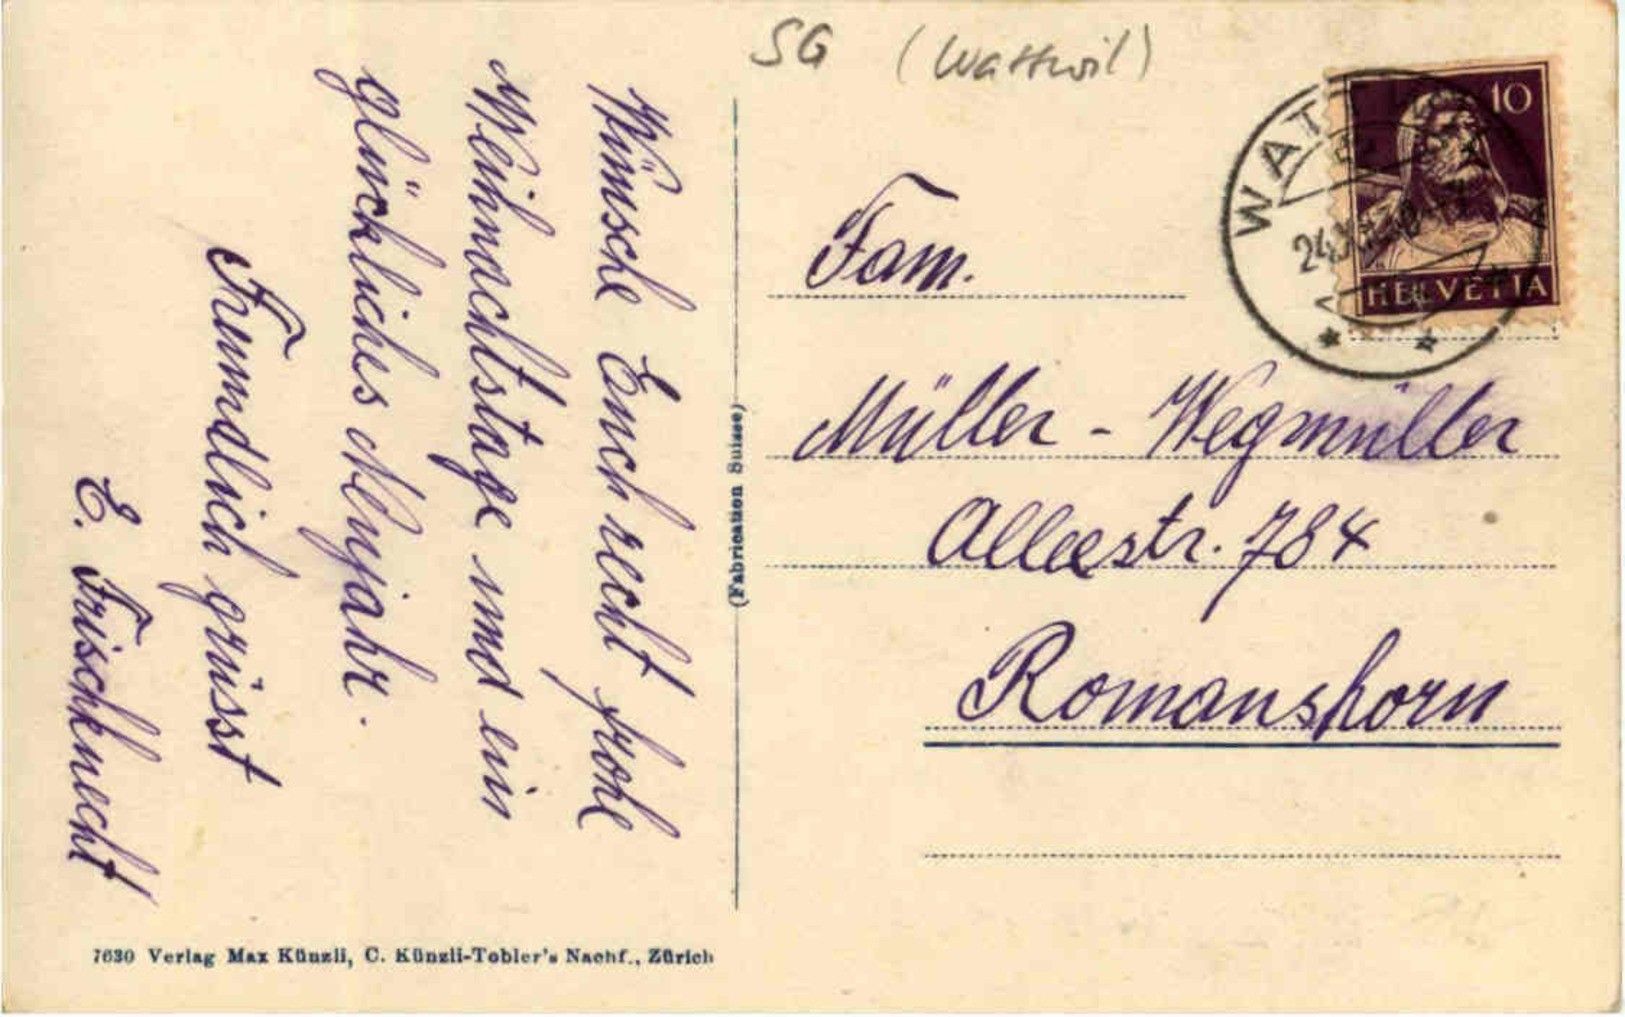 SG (Wattwil)
Wünsche Euch recht frohe
Weihnachtstage und ein
glückliches Neujahr.
Freundlich grüsst
E. Frischknecht
(Fabrication Suisse)
10
HELVETIA
WAT
24.
Fam.
Müller - Wegmüller
Alleestr. 784
Romanshorn
7630 Verlag Max Künzli, C. Künzli-Tobler's Nachf., Zürich